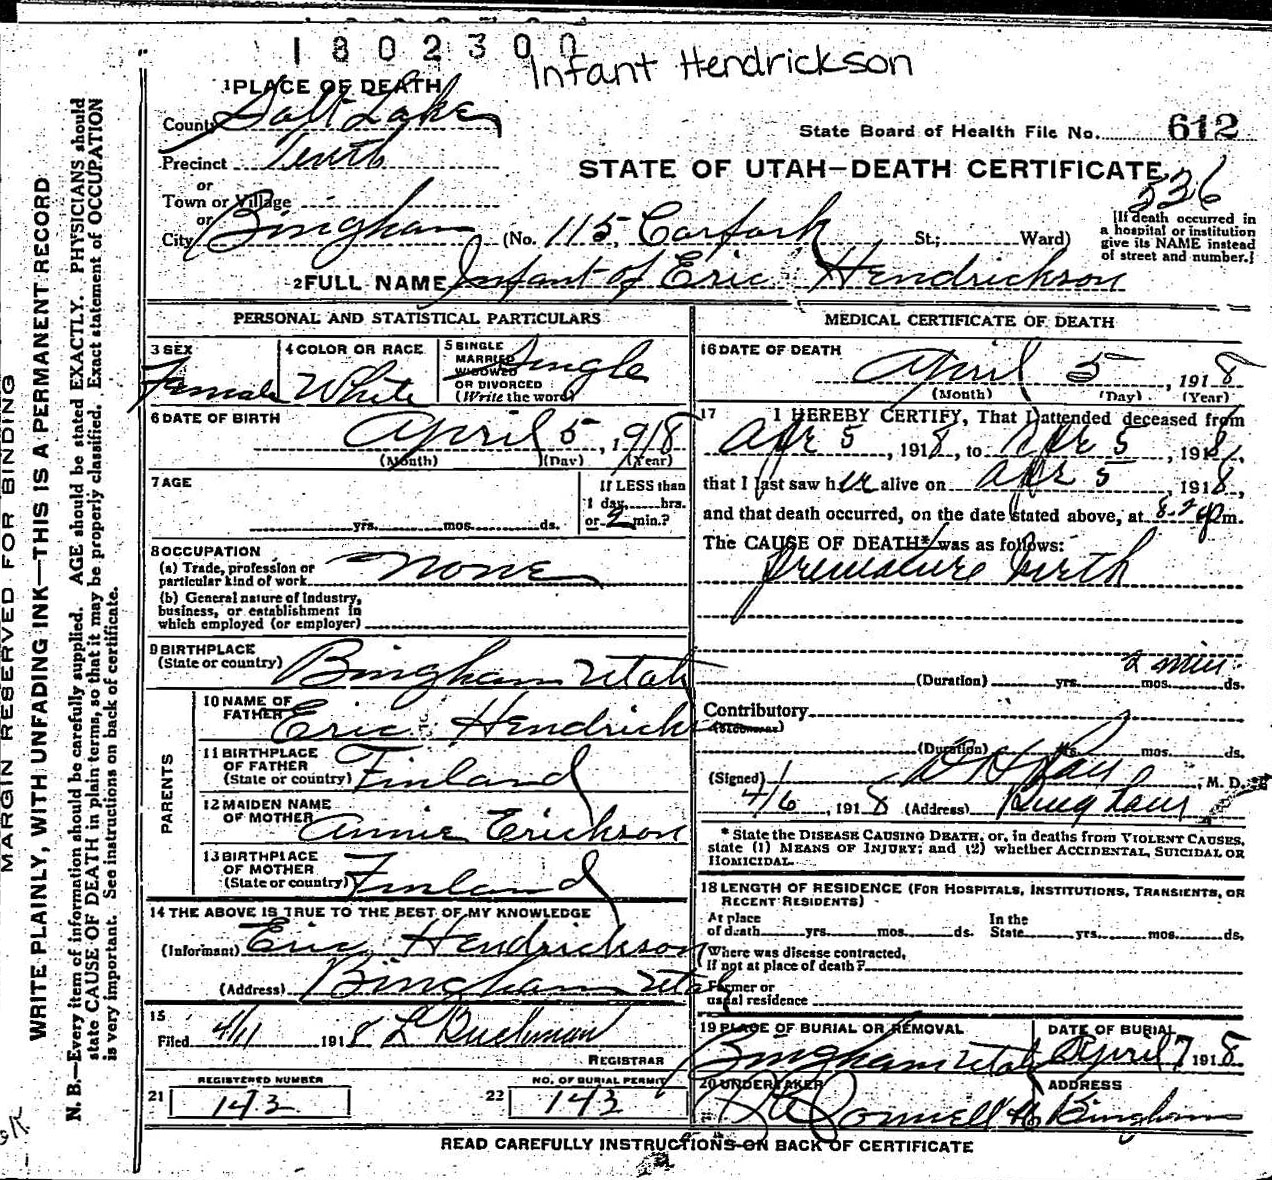 1802300
Infant Hendrickson
1 PLACE OF DEATH
County Salt Lake
State Board of Health File No. 612
Precinct Tenth
STATE OF UTAH—DEATH CERTIFICATE
336
or
Town or Village
or
City Bingham (No. 115, Carfork St.; Ward)
[If death occurred in
a hospital or institution
give its NAME instead
of street and number.]
2 FULL NAME Infant of Eric Hendrickson
PERSONAL AND STATISTICAL PARTICULARS
3 SEX
Female
4 COLOR OR RACE
White
5 SINGLE
MARRIED
WIDOWED
OR DIVORCED
(Write the word)
Single
6 DATE OF BIRTH
April 5, 1918
(Month) (Day) (Year)
7 AGE
yrs. mos. ds.
If LESS than
1 day, hrs.
or 2 min.?
8 OCCUPATION
(a) Trade, profession or
particular kind of work None
(b) General nature of Industry,
business, or establishment in
which employed (or employer)
9 BIRTHPLACE
(State or country) Bingham Utah
PARENTS
10 NAME OF
FATHER Eric Hendrick
11 BIRTHPLACE
OF FATHER
(State or country) Finland
12 MAIDEN NAME
OF MOTHER Annie Erickson
13 BIRTHPLACE
OF MOTHER
(State or country) Finland
14 THE ABOVE IS TRUE TO THE BEST OF MY KNOWLEDGE
(Informant) Eric Hendrickson
(Address) Bingham Utah
15
Filed 4/11 1918 L
REGISTRAR
21 REGISTERED NUMBER
143
22 NO. OF BURIAL PERMIT
143
MEDICAL CERTIFICATE OF DEATH
16 DATE OF DEATH
April 5, 1918
(Month) (Day) (Year)
17 I HEREBY CERTIFY, That I attended deceased from
Apr 5, 1918, to Apr 5, 1918,
that I last saw her alive on Apr 5 1918,
and that death occurred, on the date stated above, at m.
The CAUSE OF DEATH* was as follows:
Premature birth
2 min.
(Duration) yrs. mos. ds.
Contributory
(Secondary)
(Duration) yrs. mos. ds.
(Signed) M. D.
4/6, 1918 (Address) Bingham
* State the DISEASE CAUSING DEATH, or, in deaths from VIOLENT CAUSES,
state (1) MEANS OF INJURY; and (2) whether ACCIDENTAL, SUICIDAL OR
HOMICIDAL.
18 LENGTH OF RESIDENCE (FOR HOSPITALS, INSTITUTIONS, TRANSIENTS, OR
RECENT RESIDENTS)
At place
of death yrs. mos. ds.
In the
State yrs. mos. ds.
Where was disease contracted,
If not at place of death?
Former or
usual residence
19 PLACE OF BURIAL OR REMOVAL
Bingham Utah
DATE OF BURIAL
April 7 1918
20 UNDERTAKER
ADDRESS
Bingham
READ CAREFULLY INSTRUCTIONS ON BACK OF CERTIFICATE
MARGIN RESERVED FOR BINDING
WRITE PLAINLY, WITH UNFADING INK—THIS IS A PERMANENT RECORD
N. B.—Every item of information should be carefully supplied. AGE should be stated EXACTLY. PHYSICIANS should
state CAUSE OF DEATH in plain terms, so that it may be properly classified. Exact statement of OCCUPATION
is very important. See instructions on back of certificate.